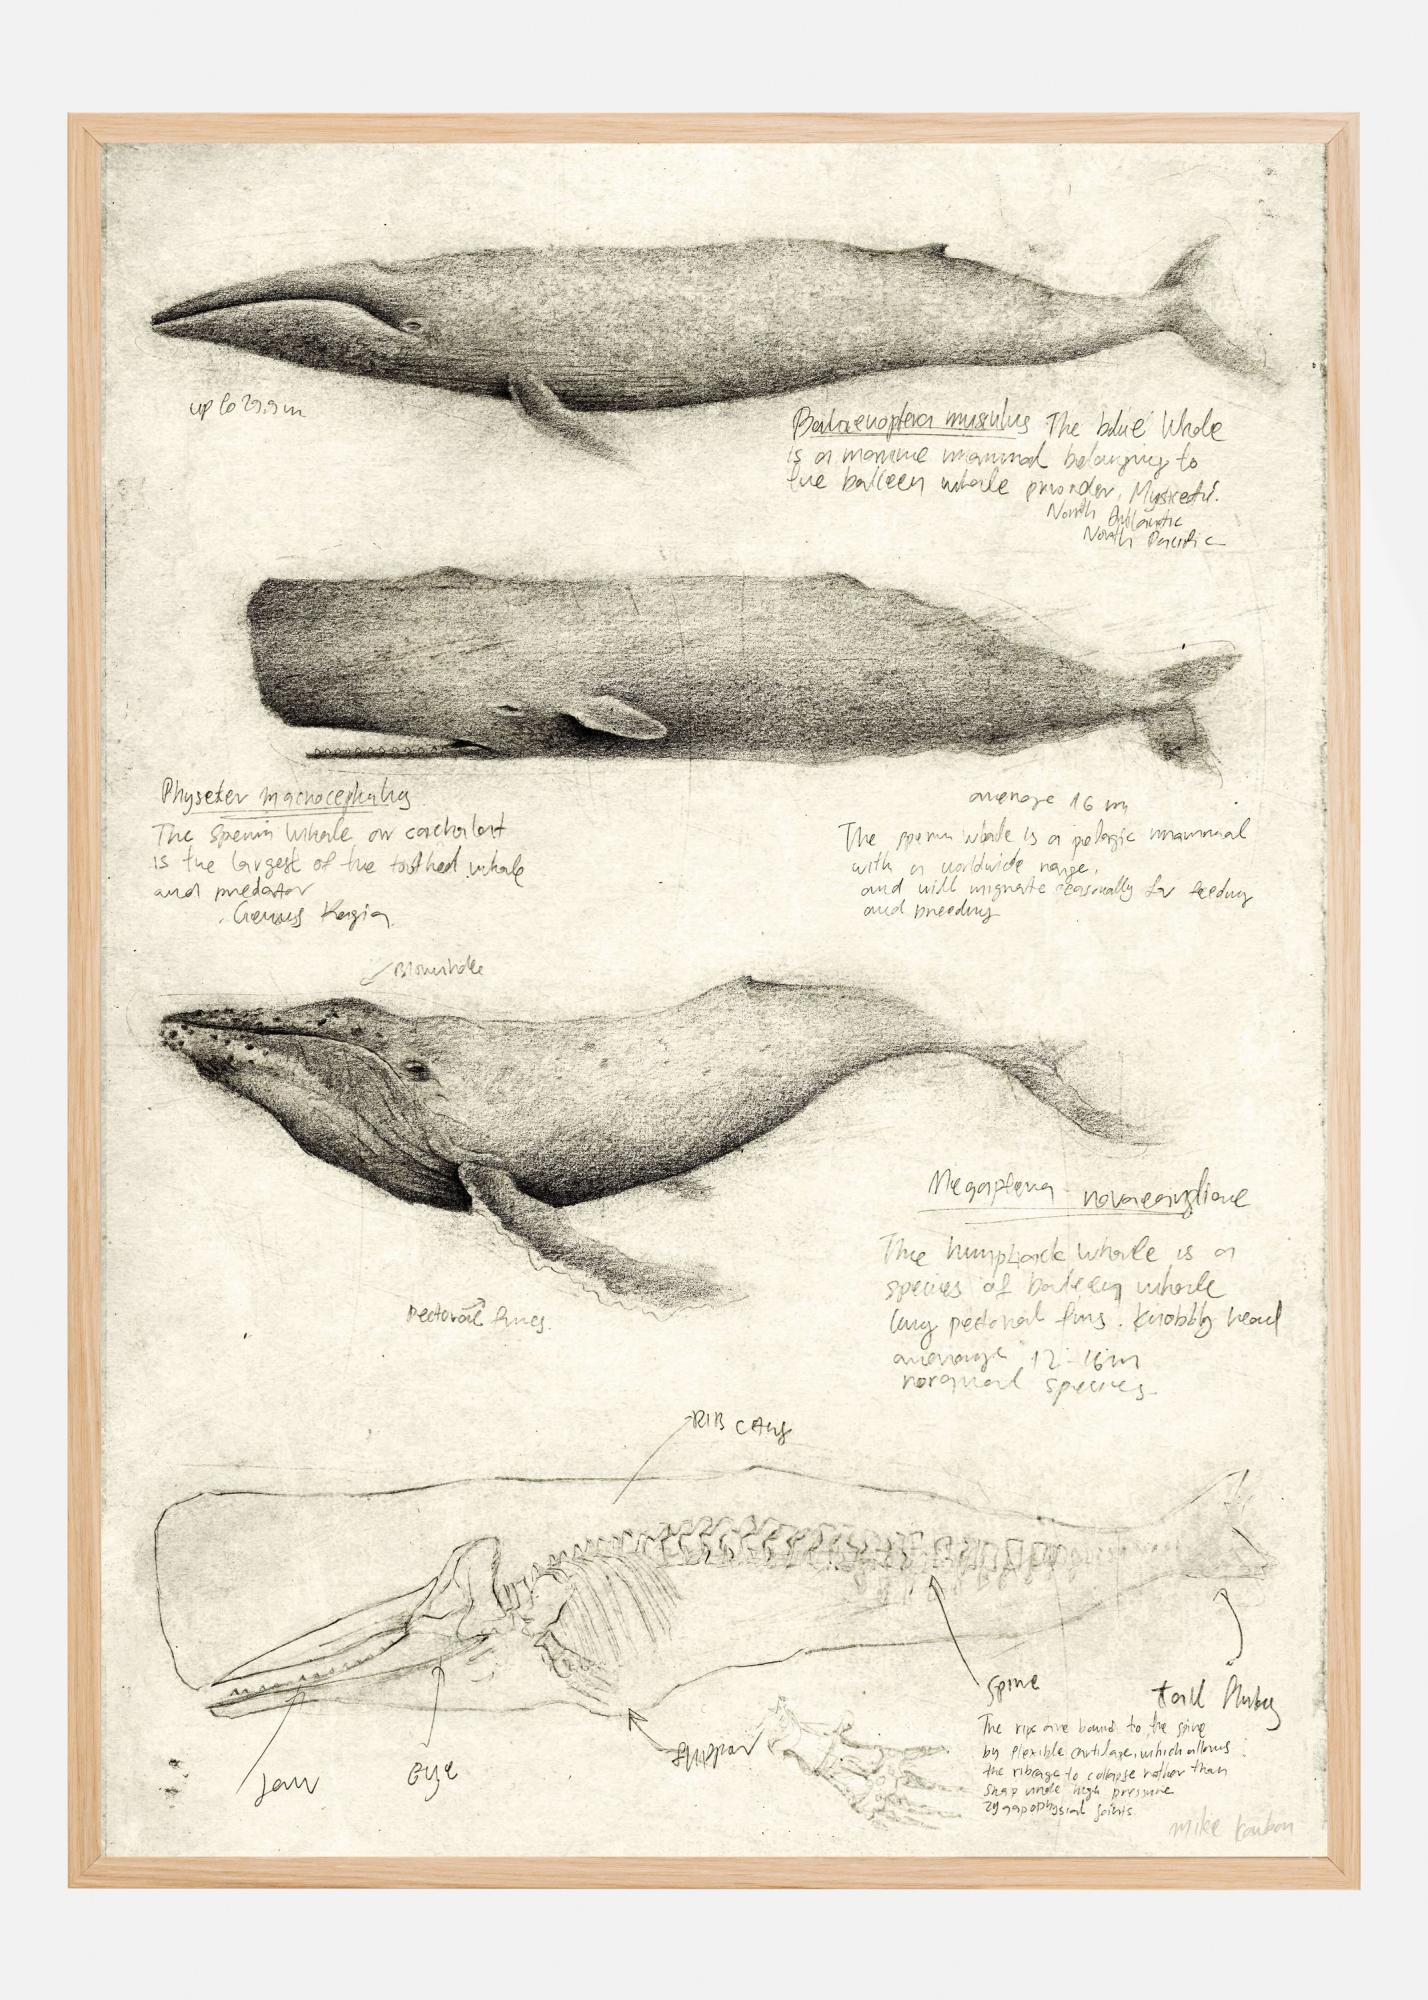 up to 29.9 m
Balaenoptera musculus The blue Whale
is a marine mammal belonging to
the baleen whale parvorder, Mysticeti.
North Atlantic
North Pacific
Physeter macrocephalus
The sperm whale or cachalot
is the largest of the toothed whale
and predator
Genus Kogia
average 16 m
The sperm whale is a pelagic mammal
with a worldwide range,
and will migrate seasonally for feeding
and breeding
Blowhole
Megaptera novaeangliae
The humpback whale is a
species of baleen whale
long pectoral fins. Knobbly head
average 12-16m
rorqual species
Pectoral fines.
RIB CAGE
Spine
tail fluke
Jaw
Eye
flipper
The rips are bound to the spine
by flexible cartilage, which allows
the ribcage to collapse rather than
snap under high pressure
zygapophysial joints
mike koubou